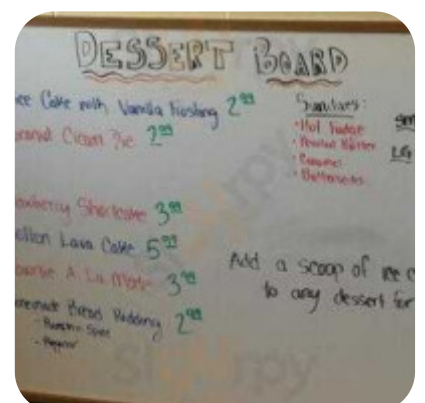 DESSERT BOARD
Cake with Vanilla Frosting 2.99
Cream Pie 2.99
Shortcake 3.99
Lava Cake 5.99
A La Mode 3.99
Bread Pudding 2.99
- Pumpkin Spice
- Regular
Sundaes:
• Hot Fudge
• Peanut Butter
• Caramel
• Butterscotch
LG
Add a scoop of ice c
to any dessert for